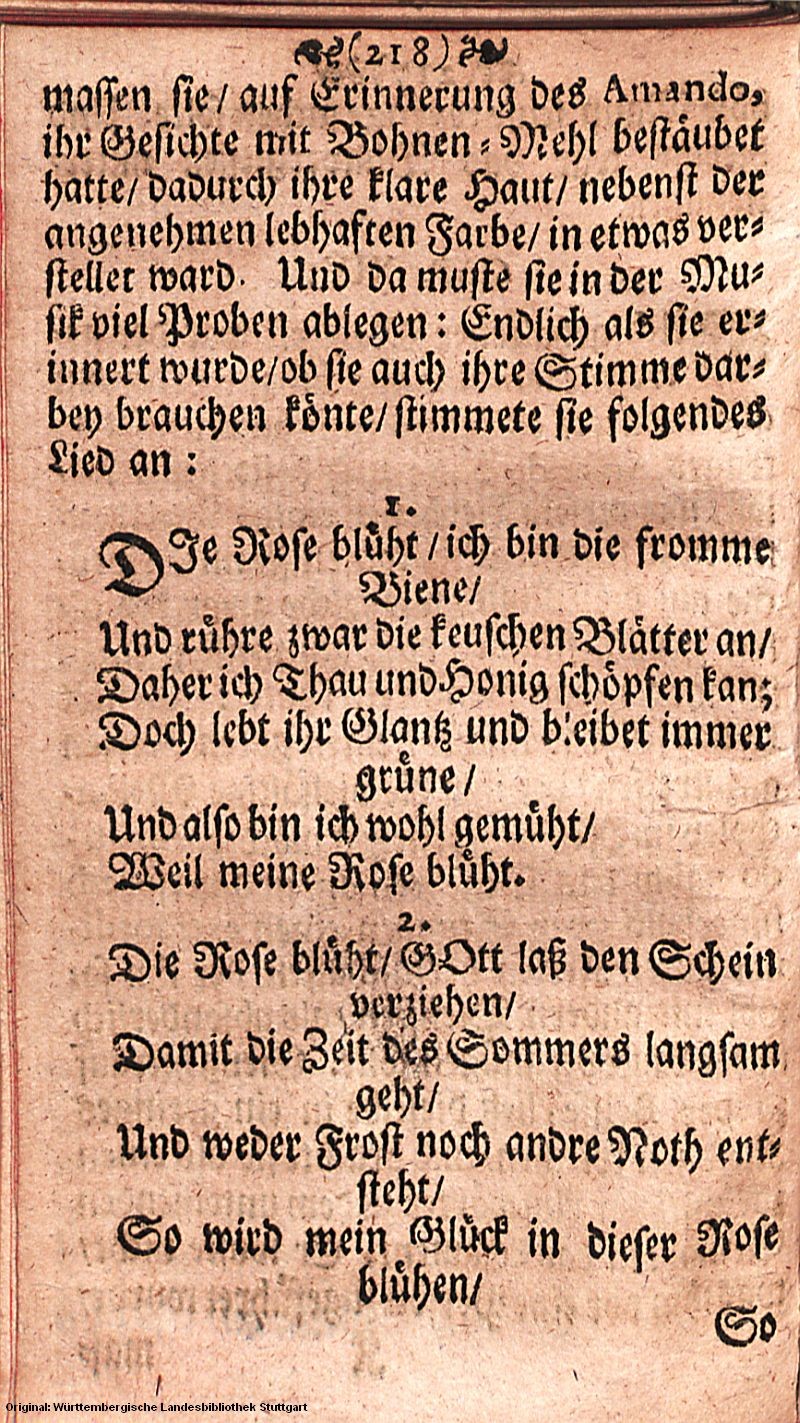 (218)
massen sie/ auf Erinnerung des Amando,
ihr Gesichte mit Bohnen-Mehl bestäubet
hatte/ dadurch ihre klare Haut/ nebenst der
angenehmen lebhaften Farbe/ in etwas ver-
stellet ward. Und da muste sie in der Mu-
sik viel Proben ablegen: Endlich als sie er-
innert wurde/ ob sie auch ihre Stimme dar-
bey brauchen könte/ stimmete sie folgendes
Lied an:
1.
DIe Rose blüht/ ich bin die fromme
Biene/
Und rühre zwar die keuschen Blätter an/
Daher ich Thau und Honig schöpfen kan;
Doch lebt ihr Glantz und bleibet immer
grüne/
Und also bin ich wohl gemüht/
Weil meine Rose blüht.
2.
Die Rose blüht/ GOtt laß den Schein
verziehen/
Damit die Zeit des Sommers langsam
geht/
Und weder Frost noch andre Noth ent-
steht/
So wird mein Glück in dieser Rose
blühen/
So
Original: Württembergische Landesbibliothek Stuttgart